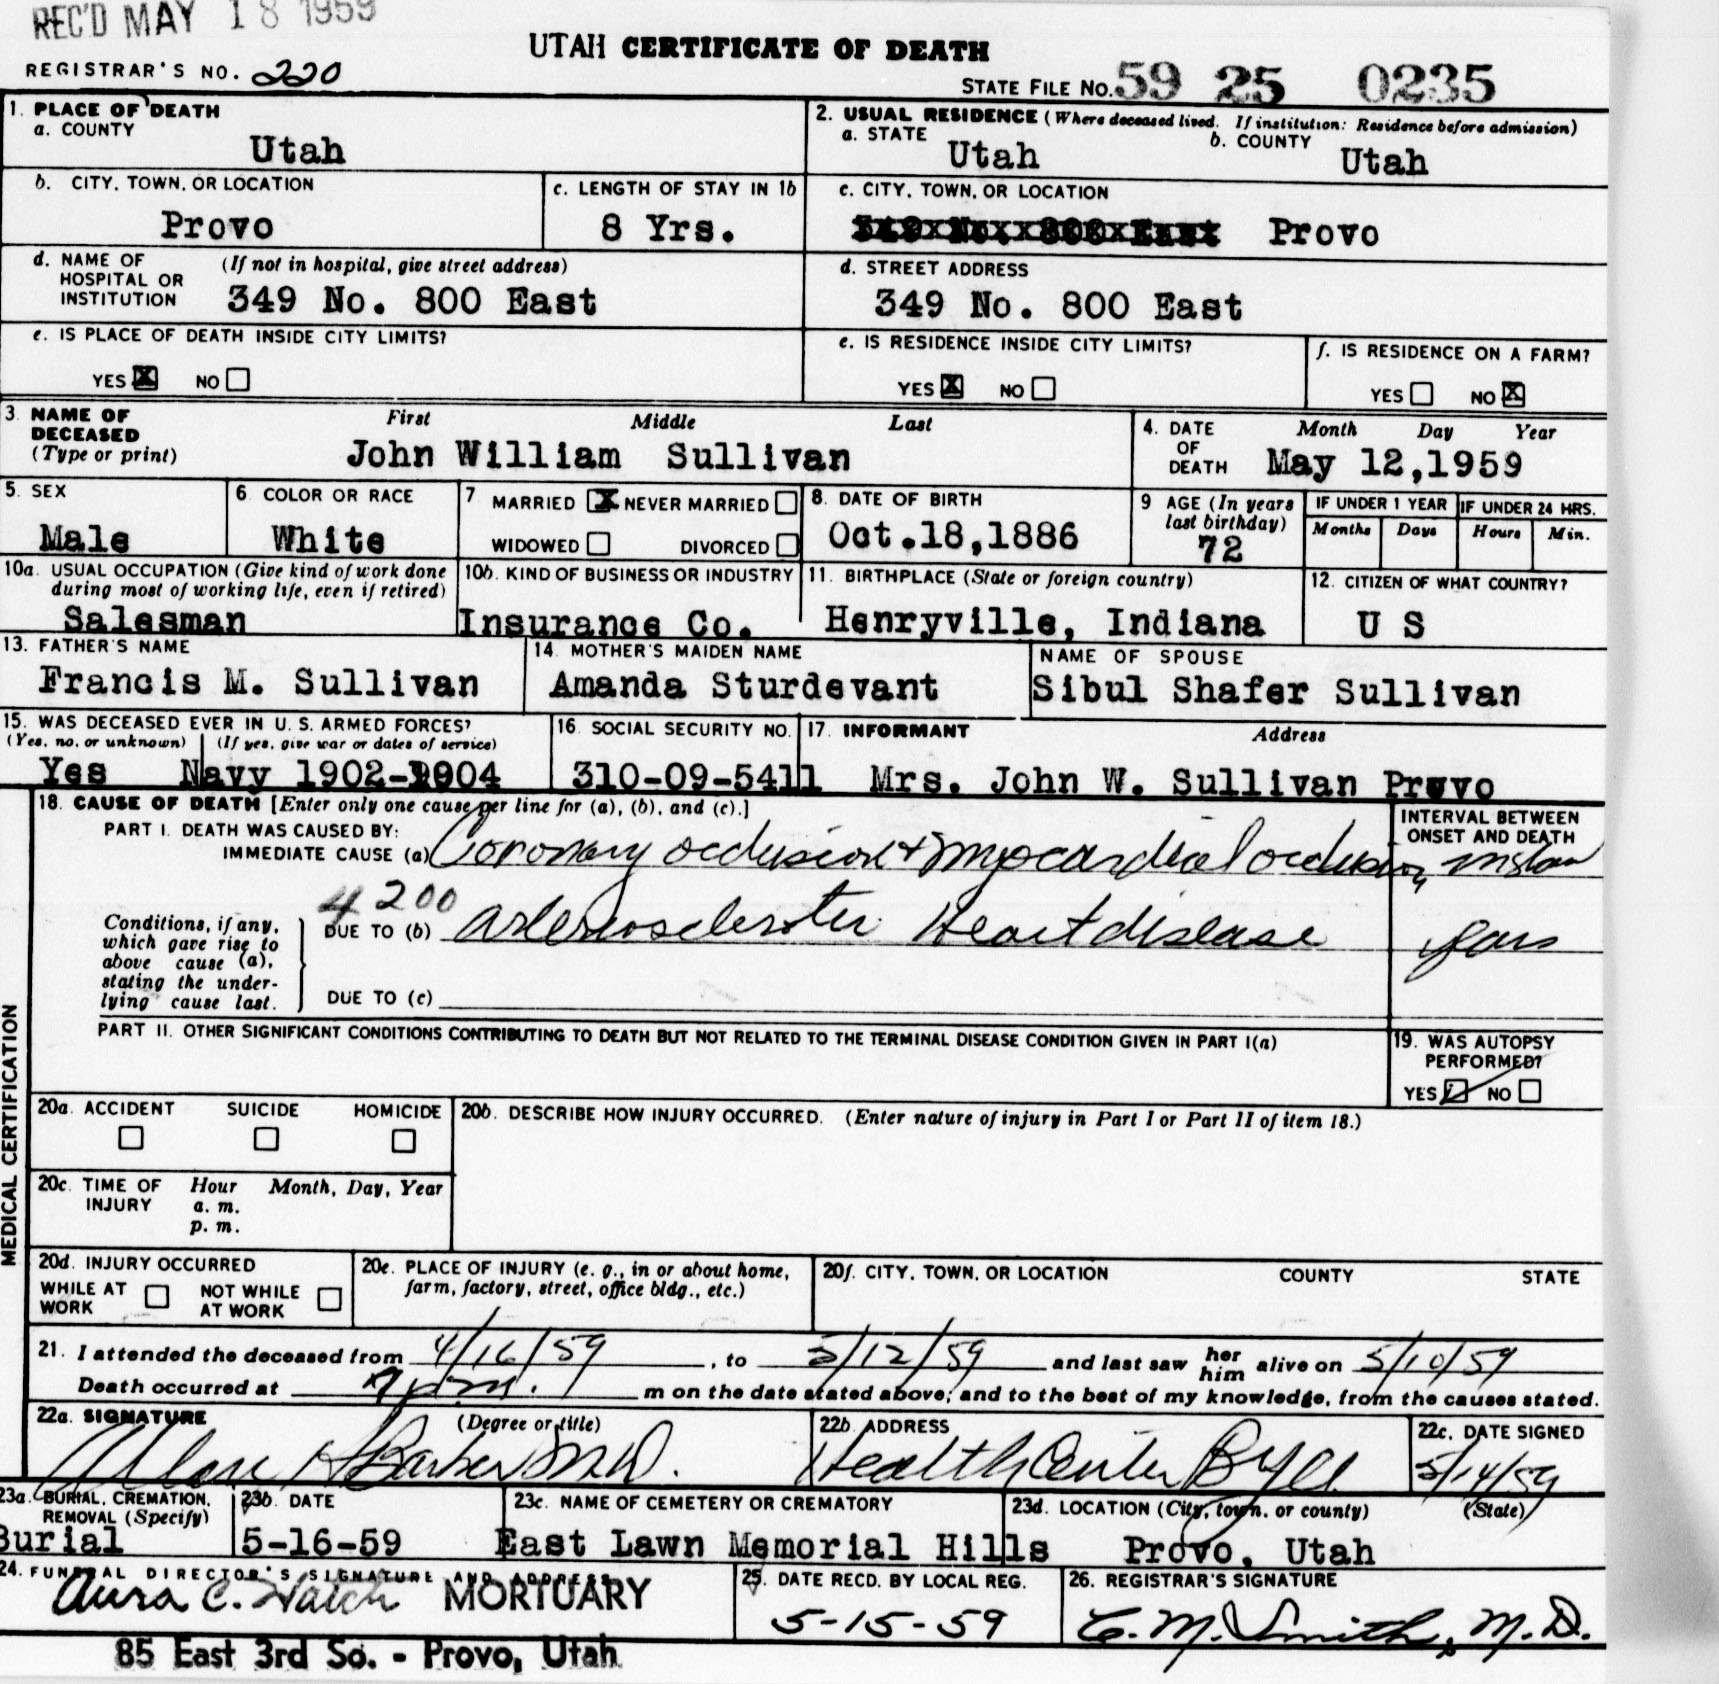 REC'D MAY 18 1959
UTAH CERTIFICATE OF DEATH
REGISTRAR'S NO. 220
STATE FILE NO. 59 25 0235
1. PLACE OF DEATH
a. COUNTY
Utah
2. USUAL RESIDENCE (Where deceased lived. If institution: Residence before admission)
a. STATE Utah b. COUNTY Utah
b. CITY, TOWN, OR LOCATION
Provo
c. LENGTH OF STAY IN 1b
8 Yrs.
c. CITY, TOWN, OR LOCATION
349 No. 800 East Provo
d. NAME OF HOSPITAL OR INSTITUTION (If not in hospital, give street address)
349 No. 800 East
d. STREET ADDRESS
349 No. 800 East
e. IS PLACE OF DEATH INSIDE CITY LIMITS?
YES X NO
e. IS RESIDENCE INSIDE CITY LIMITS?
YES X NO
f. IS RESIDENCE ON A FARM?
YES NO X
3. NAME OF DECEASED (Type or print)
First Middle Last
John William Sullivan
4. DATE OF DEATH
Month Day Year
May 12,1959
5. SEX
Male
6 COLOR OR RACE
White
7 MARRIED X NEVER MARRIED
WIDOWED DIVORCED
8. DATE OF BIRTH
Oct.18,1886
9 AGE (In years last birthday)
72
IF UNDER 1 YEAR
Months Days
IF UNDER 24 HRS.
Hours Min.
10a. USUAL OCCUPATION (Give kind of work done during most of working life, even if retired)
Salesman
10b. KIND OF BUSINESS OR INDUSTRY
Insurance Co.
11. BIRTHPLACE (State or foreign country)
Henryville, Indiana
12. CITIZEN OF WHAT COUNTRY?
U S
13. FATHER'S NAME
Francis M. Sullivan
14. MOTHER'S MAIDEN NAME
Amanda Sturdevant
NAME OF SPOUSE
Sibul Shafer Sullivan
15. WAS DECEASED EVER IN U. S. ARMED FORCES?
(Yes, no, or unknown) (If yes, give war or dates of service)
Yes Navy 1902-1904
16. SOCIAL SECURITY NO.
310-09-5411
17. INFORMANT Address
Mrs. John W. Sullivan Provo
MEDICAL CERTIFICATION
18. CAUSE OF DEATH [Enter only one cause per line for (a), (b), and (c).]
PART I. DEATH WAS CAUSED BY:
IMMEDIATE CAUSE (a) Coronary occlusion & myocardial occlusion
INTERVAL BETWEEN ONSET AND DEATH
4200
Conditions, if any, which gave rise to above cause (a), stating the underlying cause last.
DUE TO (b) Arteriosclerotic Heart disease years
DUE TO (c)
PART II. OTHER SIGNIFICANT CONDITIONS CONTRIBUTING TO DEATH BUT NOT RELATED TO THE TERMINAL DISEASE CONDITION GIVEN IN PART I(a)
19. WAS AUTOPSY PERFORMED?
YES NO
20a. ACCIDENT SUICIDE HOMICIDE
20b. DESCRIBE HOW INJURY OCCURRED. (Enter nature of injury in Part I or Part II of item 18.)
20c. TIME OF INJURY Hour Month, Day, Year
a. m.
p. m.
20d. INJURY OCCURRED
WHILE AT WORK NOT WHILE AT WORK
20e. PLACE OF INJURY (e. g., in or about home, farm, factory, street, office bldg., etc.)
20f. CITY, TOWN, OR LOCATION COUNTY STATE
21. I attended the deceased from 4/16/59, to 5/12/59 and last saw her him alive on 5/10/59
Death occurred at 7 p.m. m on the date stated above; and to the best of my knowledge, from the causes stated.
22a. SIGNATURE (Degree or title)
Barker M.D.
22b. ADDRESS
Health Center BYU
22c. DATE SIGNED
5/14/59
23a. BURIAL, CREMATION, REMOVAL (Specify)
Burial
23b. DATE
5-16-59
23c. NAME OF CEMETERY OR CREMATORY
East Lawn Memorial Hills
23d. LOCATION (City, town, or county) (State)
Provo, Utah
24. FUNERAL DIRECTOR'S SIGNATURE AND ADDRESS
C. Hatch MORTUARY
85 East 3rd So. - Provo, Utah
25. DATE RECD. BY LOCAL REG.
5-15-59
26. REGISTRAR'S SIGNATURE
C. M. Smith, M.D.